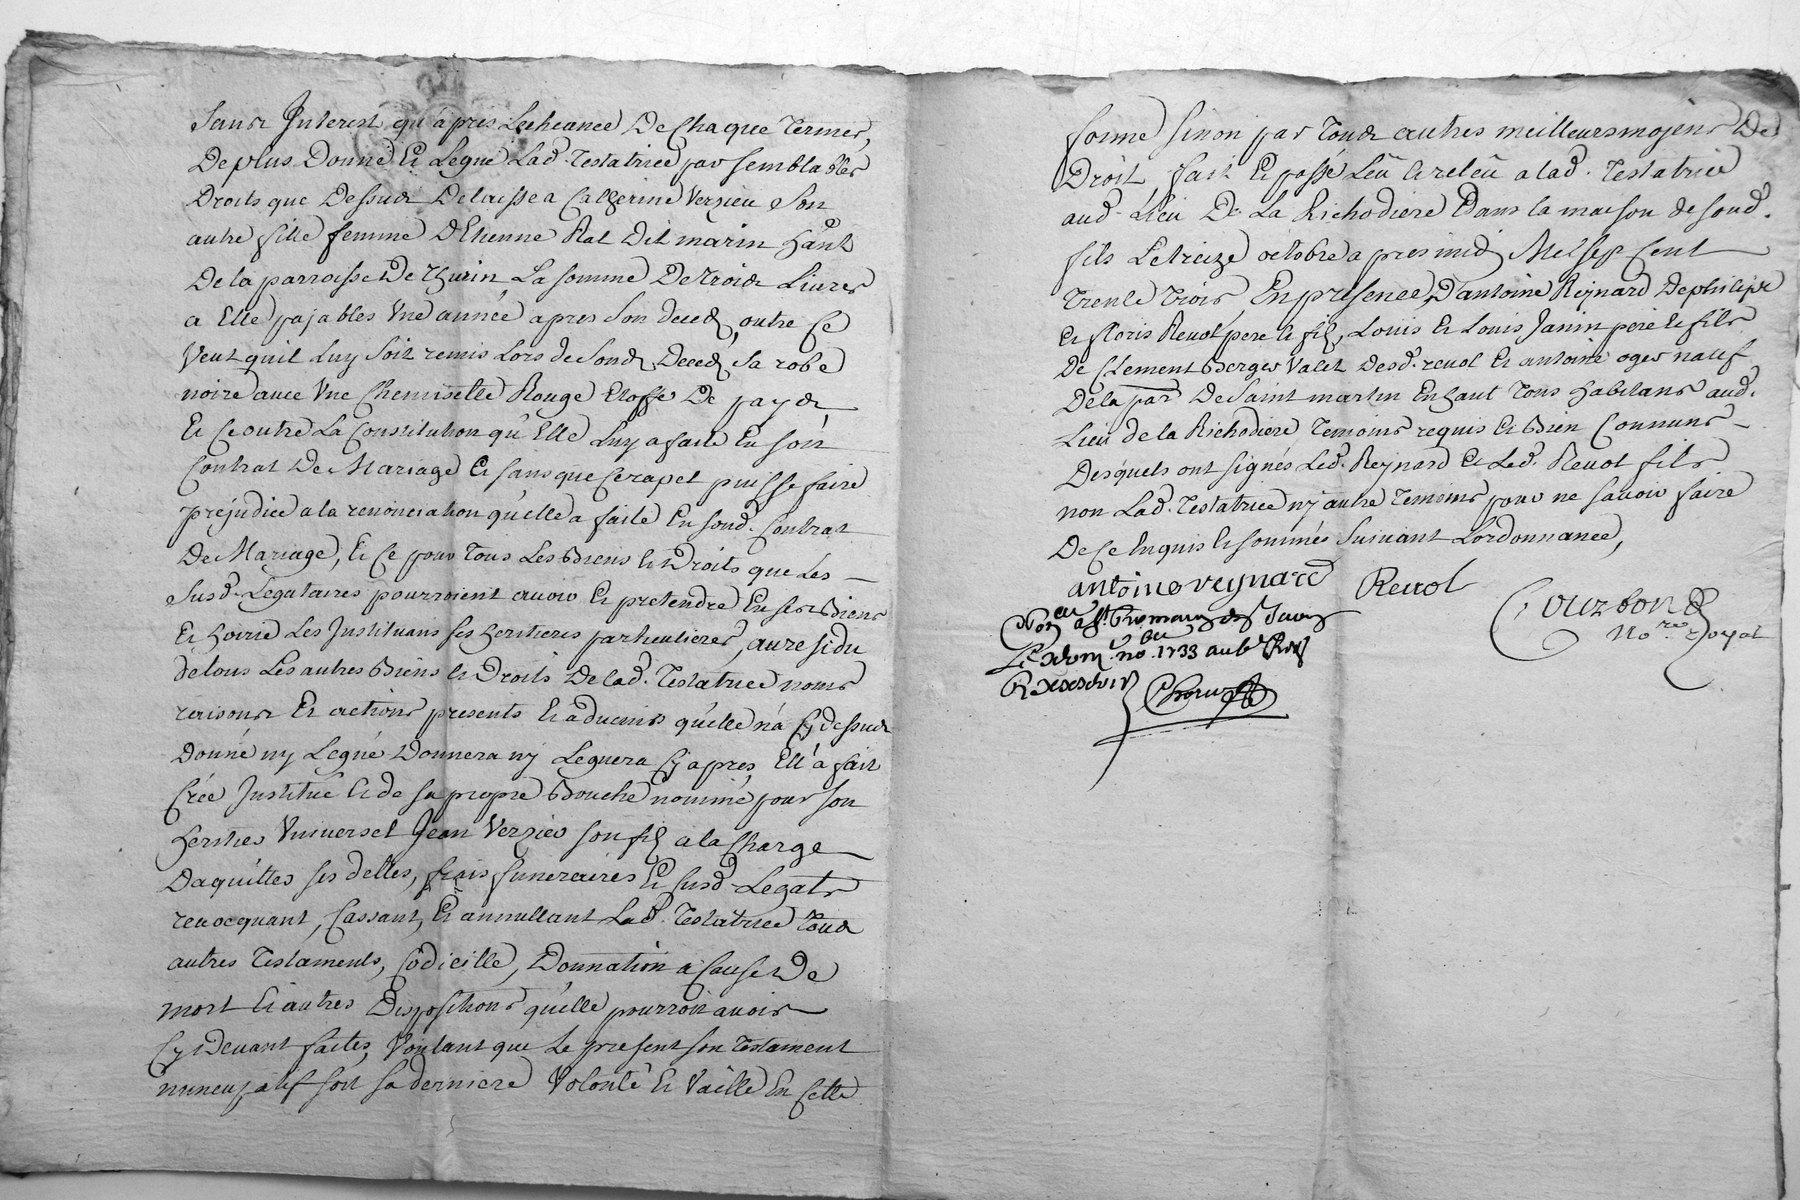 sans Interest qu'apres Lecheance De Chaque Terme,
De plus Donne Et Legue Lad. Testatrice par semblables
Droits que Dessus Delaisse a Catherine Verzieu Son
autre fille femme D'Etienne Rat Dit marin hant
De la parroisse De Thurin La somme De Trois Livres
a Elle pajables Une année apres Son decedz, outre Ce
Veut quil Luy Soit remis Lors de Sond. Decedz, Sa robe
noire avec Une Chemisette Rouge Etoffe De payds,
Et Ce outre La Constitution qu'Elle Luy a faite En Son
Contrat De Mariage Et sans que Ce rapel puisse faire
prejudice a la renonciation qu'elle a faite En sond. Contrat
De Mariage, Et Ce pour Tous Les Biens Et Droits que Les
Susd. Legataires pourroient avoir Et pretendre En ses Biens
Et hoirie Les Instituans ses heritieres particulieres, au residu
de tous Les autres Biens Et Droits De lad. Testatrice noms
raisons Et actions presents Et aduenirs qu'elle n'a Cy dessus
Donné ny Legué Donnera ny Leguera Cy apres Ell'a fait
Crée Institué Et de sa propre Bouche nommé pour son
heritier Universel Jean Verzieu son filz a la Charge
Daquitter ses dettes, frais funeraires Et susd. Legats
reuocquant, Cassant, Et annullant Lad. Testatrice Tous
autres Testaments, Codicille, Donnation a Cause De
mort Et autres Dispositions qu'elle pourroit auoir
Cy Deuant faites, Voulant que Le present son Testament
nuncupatif soit sa derniere Volonté Et Vaille En Cette
forme sinon par Tous autres meilleurs mojens De
Droit, fait Et passé Leû Et releû a lad. Testatrice
aud. Lieu De La Richodiere Dans la maison de sond.
fils Le treize octobre apres midj Mil sept Cent
Trente Trois En presence D'antoine Reynard De philipe
Et floris Reuol pere Et filz, Louis Et Louis Janin pere Et fils
De Clement Berger Valet Desd. reuol Et antoine oger natif
De la par. De Saint martin En haut Tous habitans aud.
Lieu de la Richodiere Temoins requis Et Bien Connuns
Desquels ont signés Led. Reynard Et Led. Reuol fils
non Lad. Testatrice ny autre Temoins pour ne sauoir faire
De Ce Enquis Et sommés Suiuant Lordonnance,
antoine reynard Reuol
Couzbon
No.re Royal
no.bre 1733